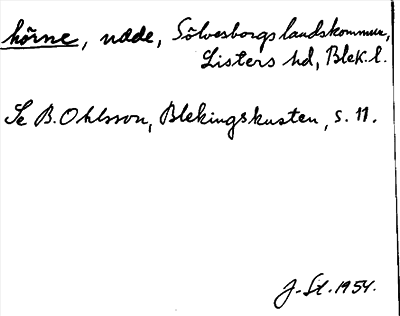 hörne, udde, Sölvesborgs landskommun,
Listers hd, Blek. l.
Se B. Ohlsson, Blekingskusten, s. 11.
J. Sl. 1954.